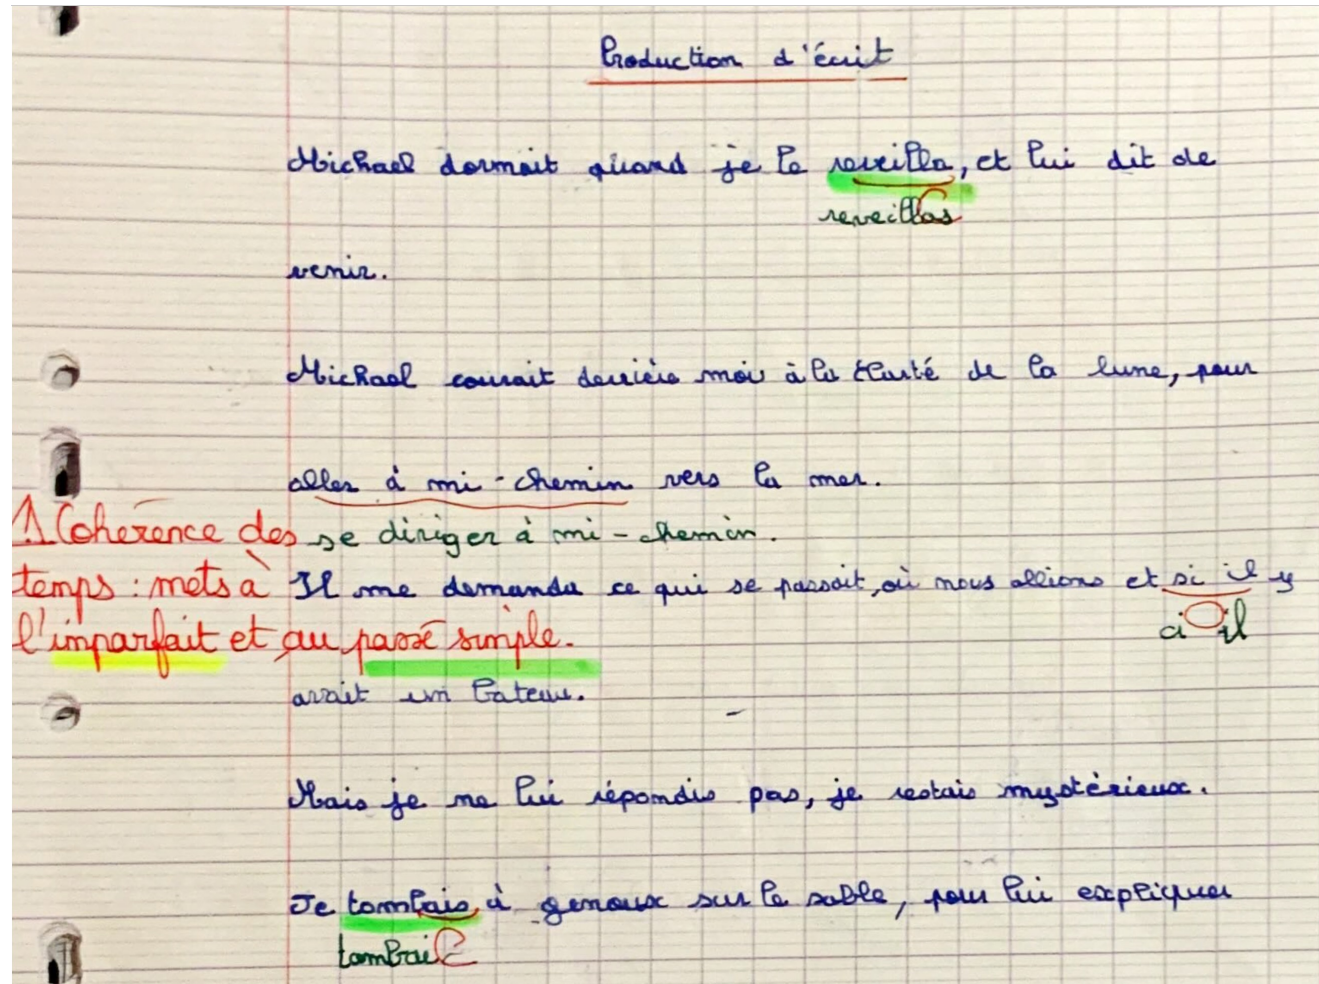 Production d'écrit
Michael dormait quand je le reveilla, et lui dit de
reveillas
venir.
Michael courait derrière moi à la clarté de la lune, pour
aller à mi-chemin vers la mer.
⚠ Cohérence des
se diriger à mi-chemin.
temps : mets à
Il me demanda ce qui se passait, où nous allions et si il y
ci il
l'imparfait et au passé simple.
avait un bateau.
Mais je ne lui répondis pas, je restais mystérieux.
Je tombais à genoux sur le sable, pour lui expliquer
tombai